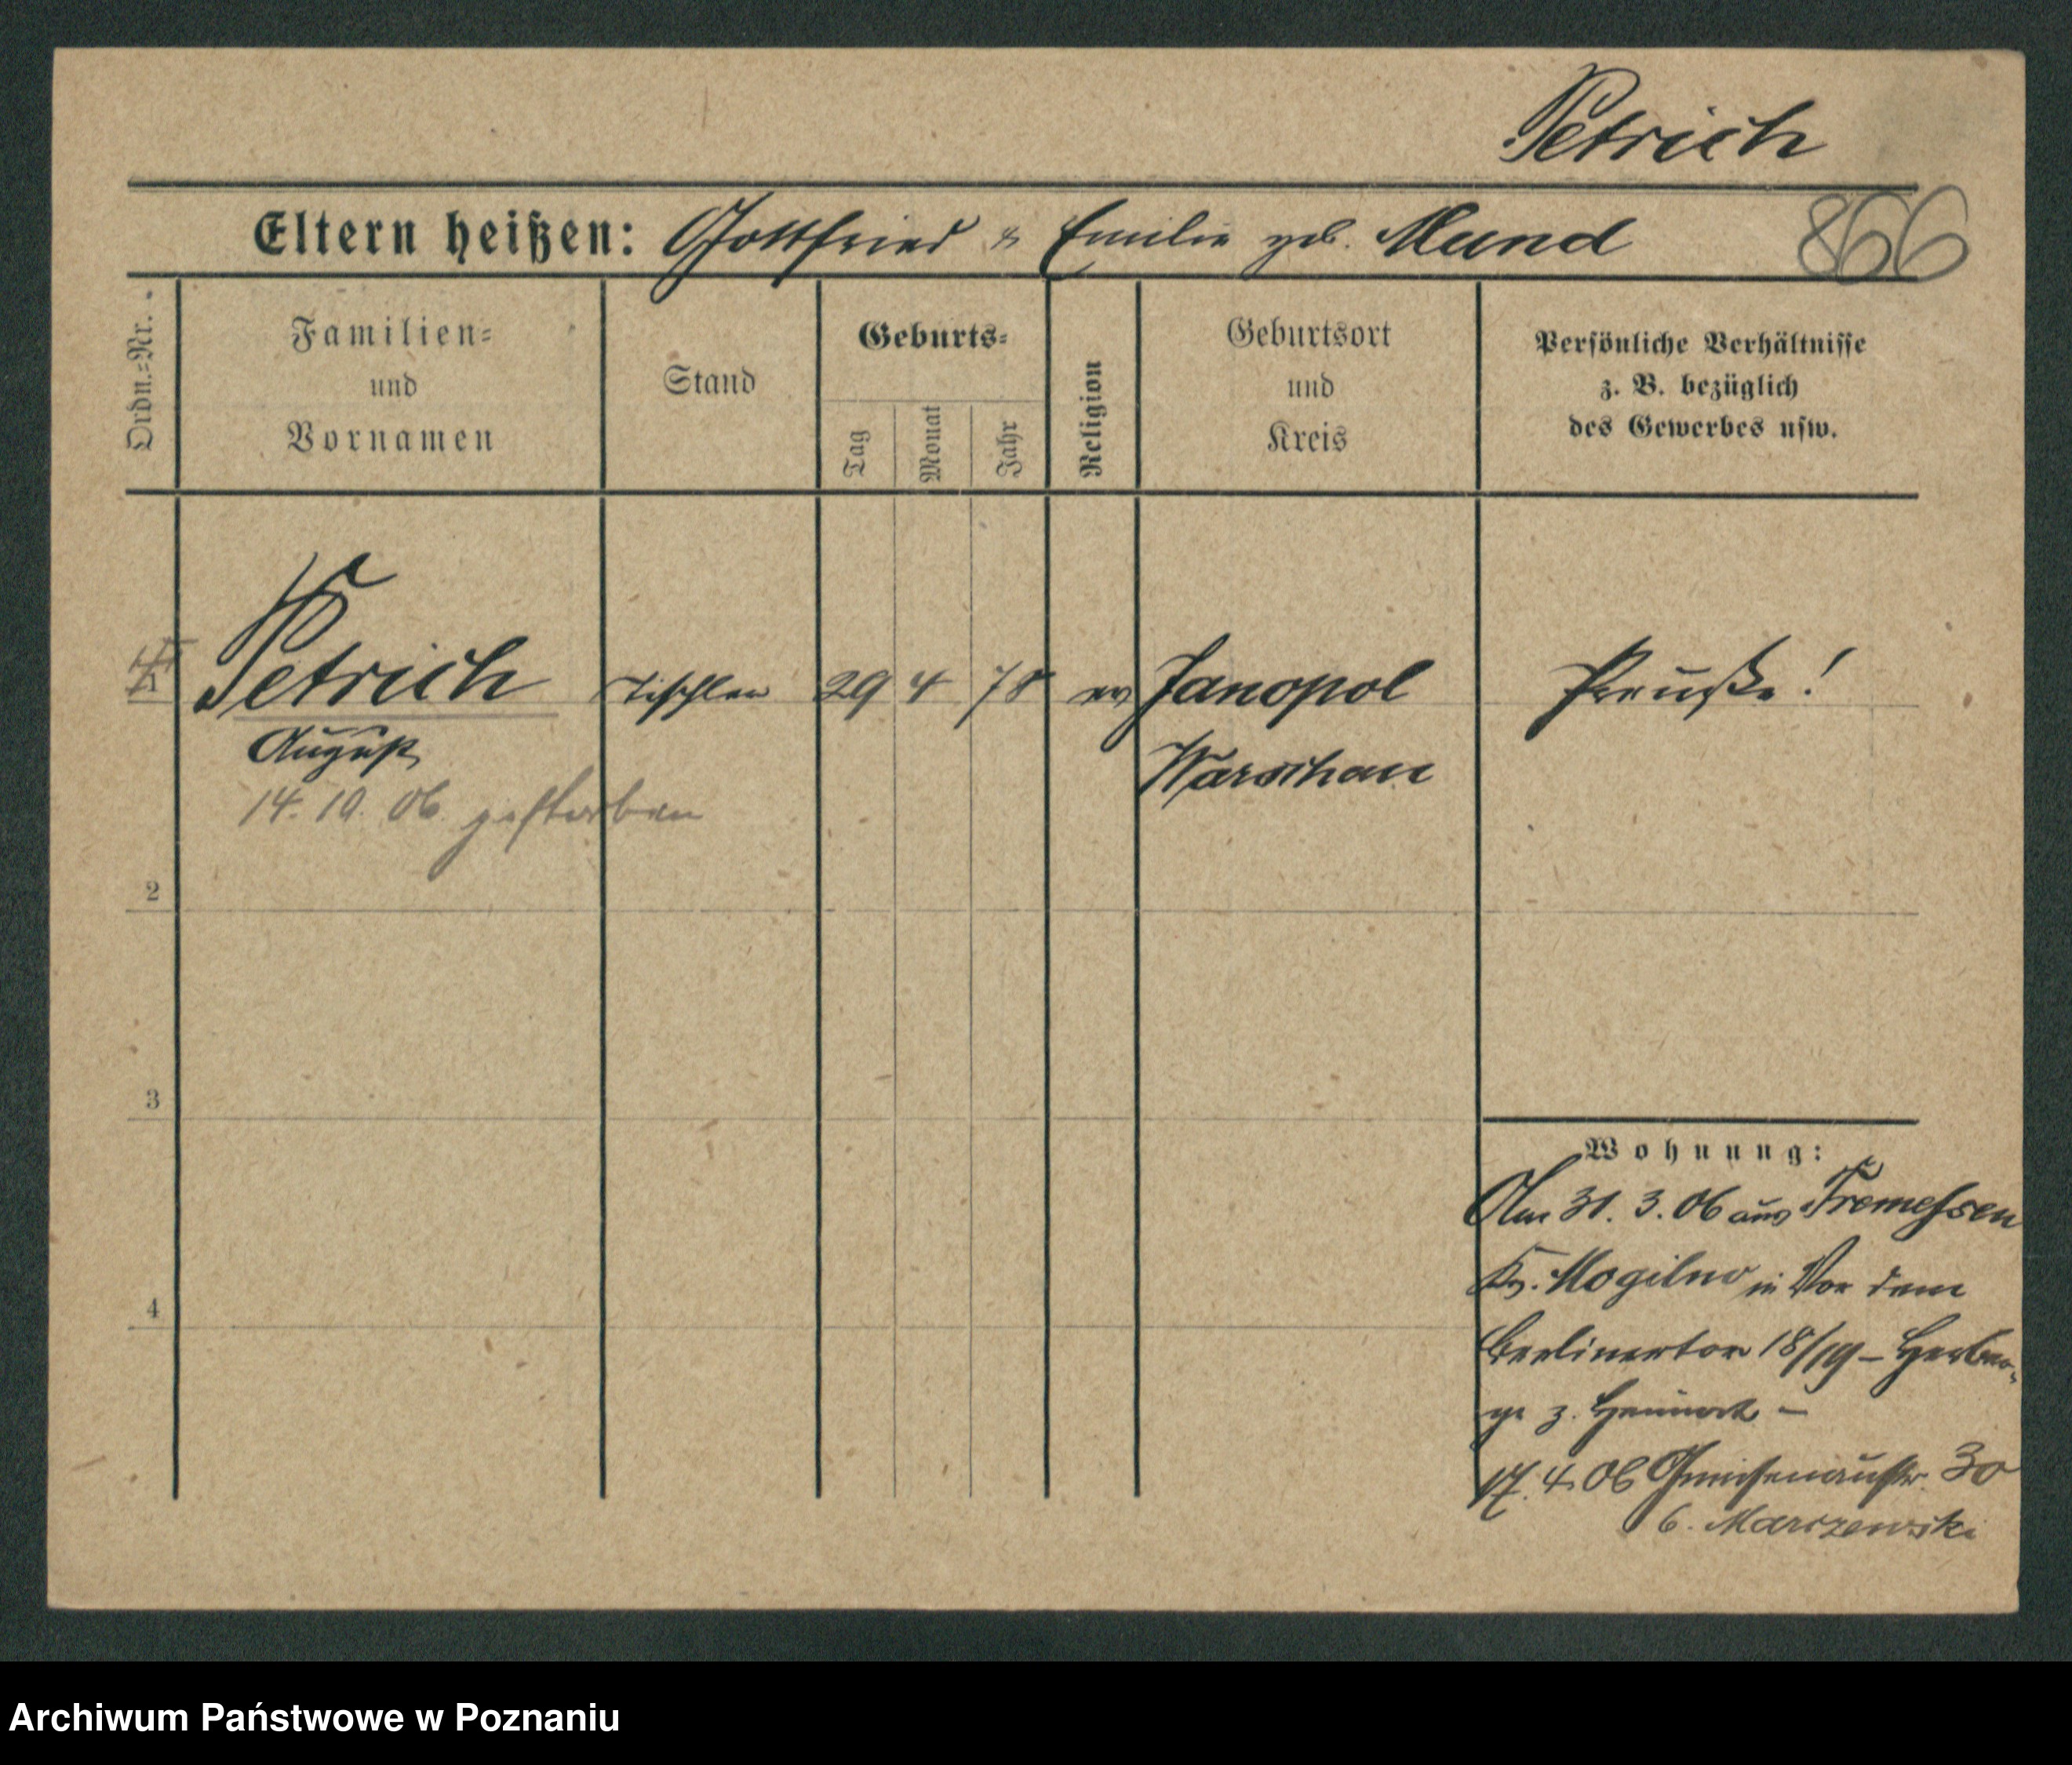 Petrich
Eltern heißen: Gottfried & Emilie geb. Mund
866
Ordn.-Nr.
Familien-
und
Vornamen
Stand
Geburts-
Tag
Monat
Jahr
Religion
Geburtsort
und
Kreis
Persönliche Verhältnisse
z. B. bezüglich
des Gewerbes usw.
1 Petrich Tischler 29 4 78 ev Janopol Preuße!
August Warschau
14. 10. 06. gestorben
2
3
4
Wohnung:
Am 31. 3. 06 aus Tremessen
Kr. Mogilno in Vor dem
Berlinertor 18/19 – Herber-
ge z. Heimat –
17. 4. 06 Gneisenaustr. 30
b. Marszewski
Archiwum Państwowe w Poznaniu